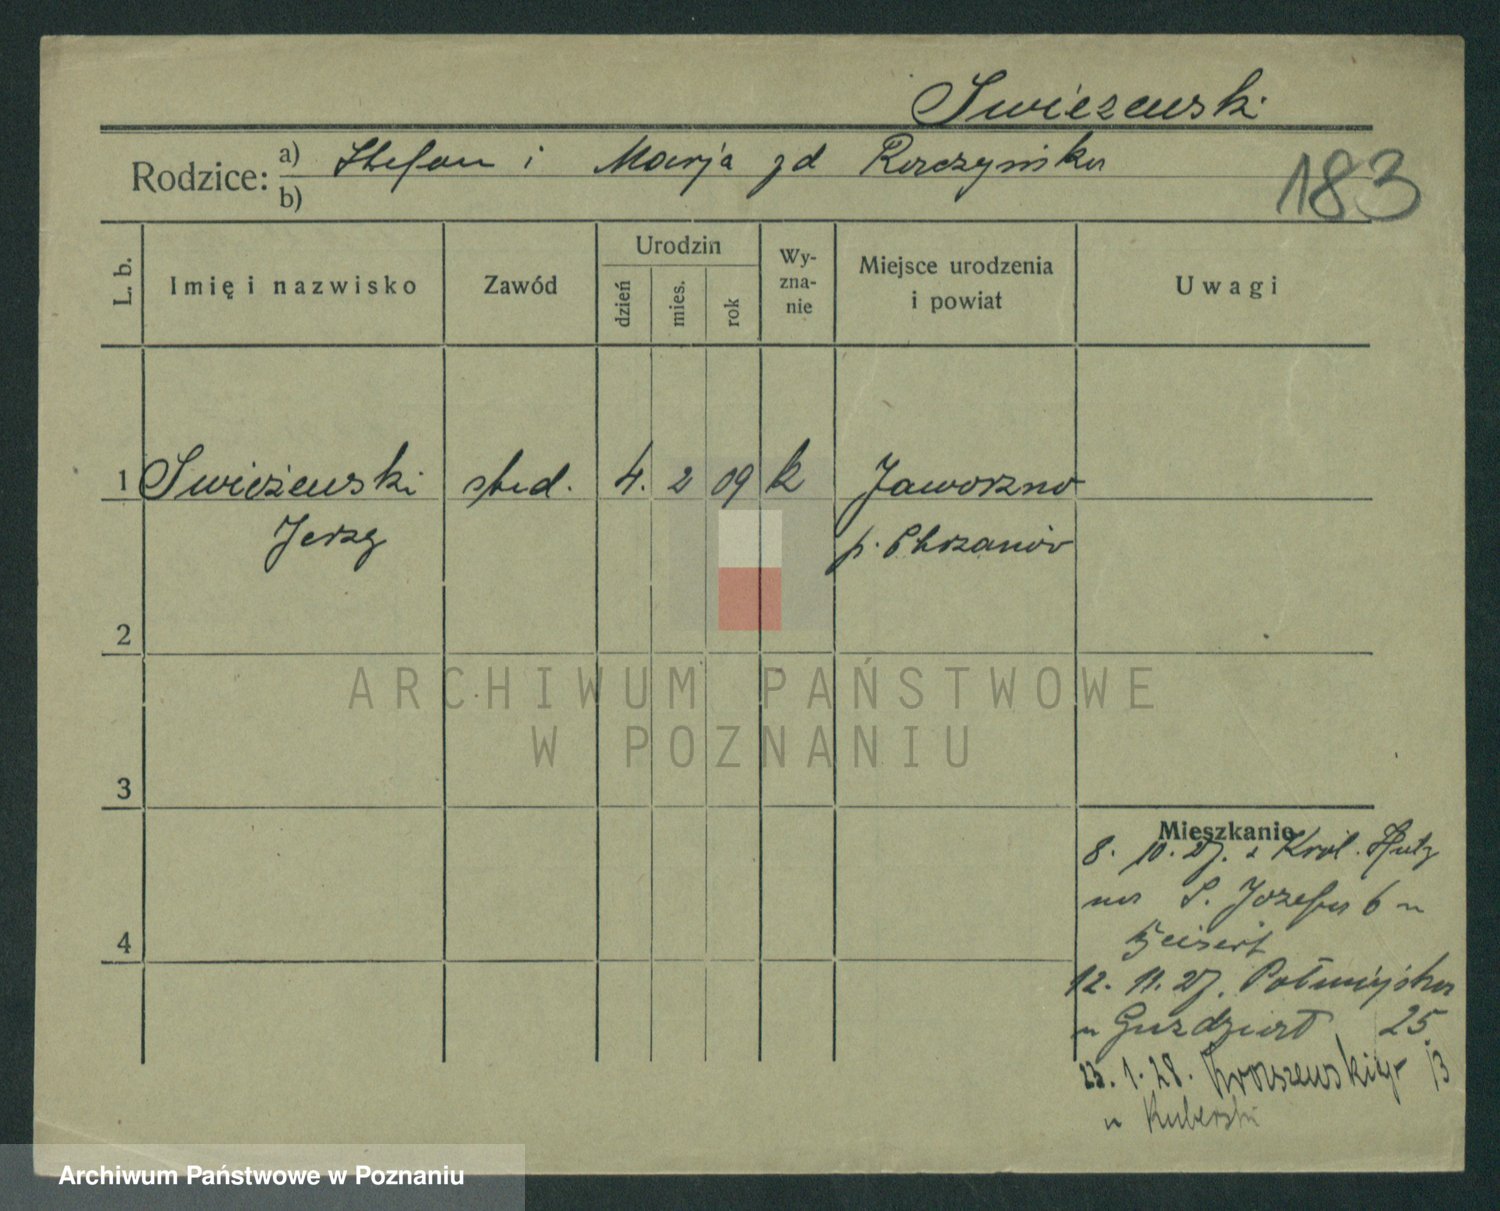 Swieżewski
Rodzice: a) Stefan i Marja zd
b)
183
L. b.
Imię i nazwisko
Zawód
Urodzin
dzień
mies.
rok
Wy-
zna-
nie
Miejsce urodzenia
i powiat
Uwagi
1 Swieżewski stud. 4. 2 09 k Jaworzno
Jerzy p. Chrzanów
2
3
4
ARCHIWUM PAŃSTWOWE
W POZNANIU
Mieszkanie
8. 10. 27. z Król. Huty
na S. Józefa 6 u
Zeisert
12. 11. 27. Półwiejska
u 25
23. 1. 28. Kraszewskiego 13
u Kuberski
Archiwum Państwowe w Poznaniu